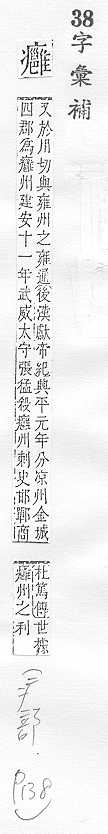 38字彙補
癰
又於用切與雍州之雍通後漢獻帝紀興平元年分凉州金城
四郡爲癰州建安十一年武威太守張猛殺癰州刺史邯鄲商
杜篤傳世據
癰州之利
疒部.
P138